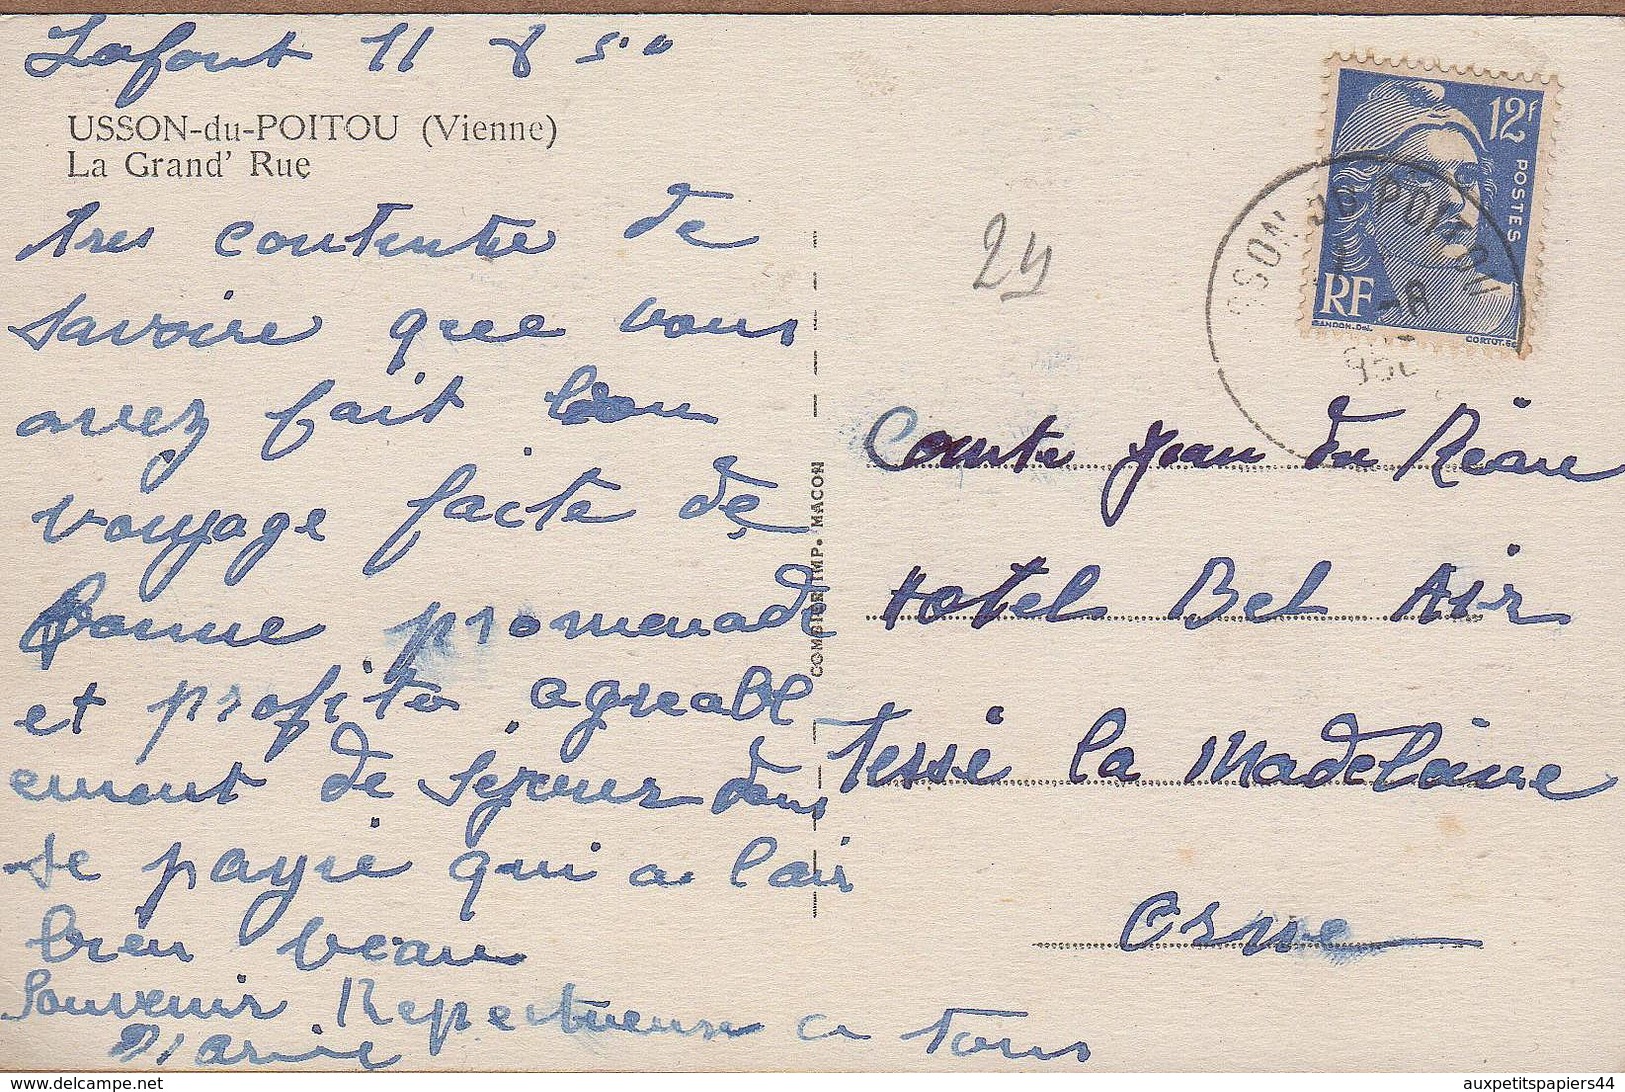 Lafont 11 8 50
USSON-du-POITOU (Vienne)
La Grand' Rue
tres contente de
savoire que vous
avez fait bon
vouyage faite de
bonne promenade
et profite agreabl
ement de séjour dans
se payse qui a lair
bien beau
Souvenir Respectueuse a tous
Marie
COMBIER IMP. MACON
24
12f
POSTES
RF
GANDON-Del.
CORTOT.Sc
USSON DU POITOU
-8
950
Comte Jean du
Hotel Bel Air
Tessé la Madeleine
Orne
delcampe.net
auxpetitspapiers44